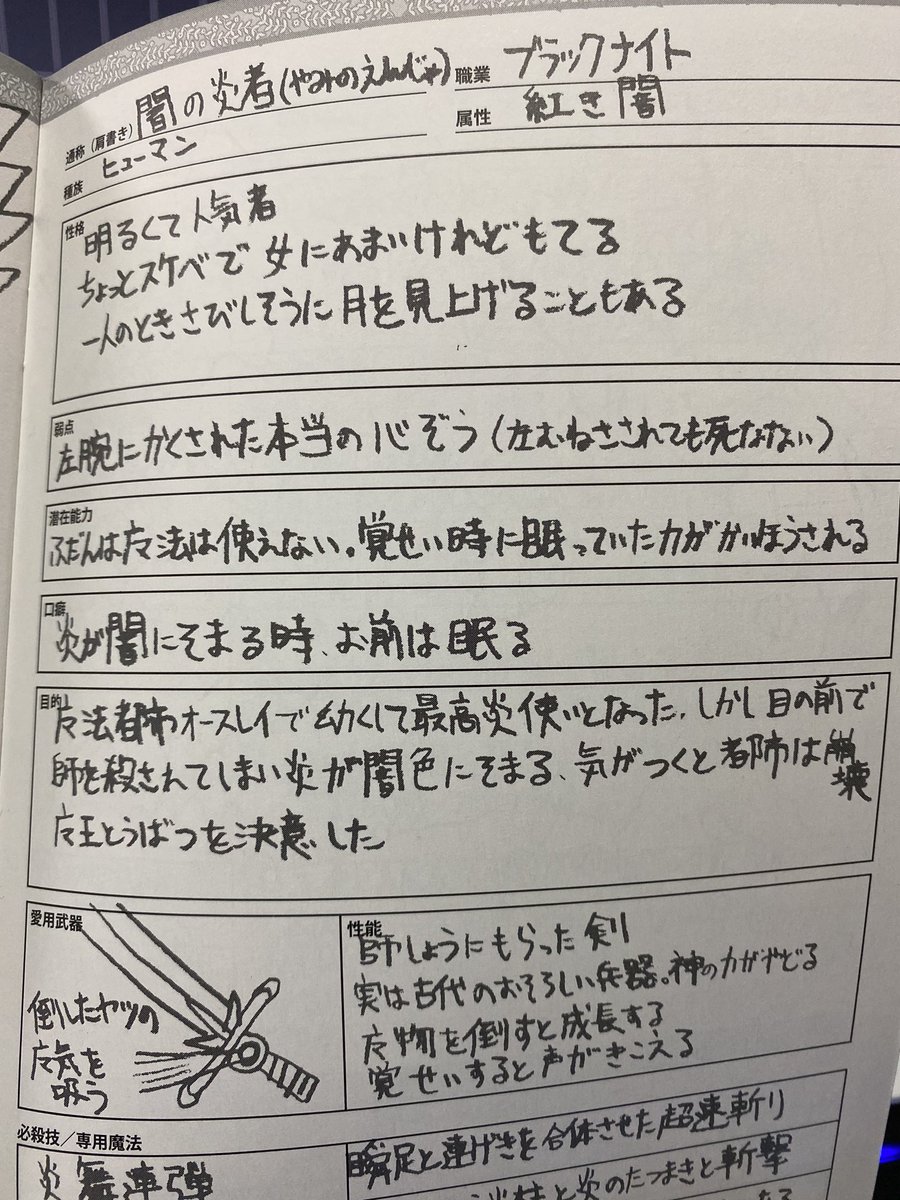 通称(肩書き) 闇の炎者(やみのえんじゃ)
職業 ブラックナイト
種族 ヒューマン
属性 紅き闇
性格
明るくて人気者
ちょっとスケベで女にあまいけれどもてる
一人のときさびしそうに月を見上げることもある
弱点
左腕にかくされた本当の心ぞう(左むねさされても死なない)
潜在能力
ふだんは广法は使えない。覚せい時に眠っていた力がかいほうされる
口癖
炎が闇にそまる時、お前は眠る
目的
广法都市オースレイで幼くして最高炎使いとなった。しかし目の前で
師を殺されてしまい炎が闇色にそまる、気がつくと都市は崩壊
广王とうばつを決意した
愛用武器
倒したヤツの
广気を
吸う
性能
師しょうにもらった剣
実は古代のおそろしい兵器。神の力がやどる
广物を倒すと成長する
覚せいすると声がきこえる
必殺技/専用魔法
炎舞連弾
瞬足と連げきを合体させた超速斬り
と炎のたつまきと斬撃